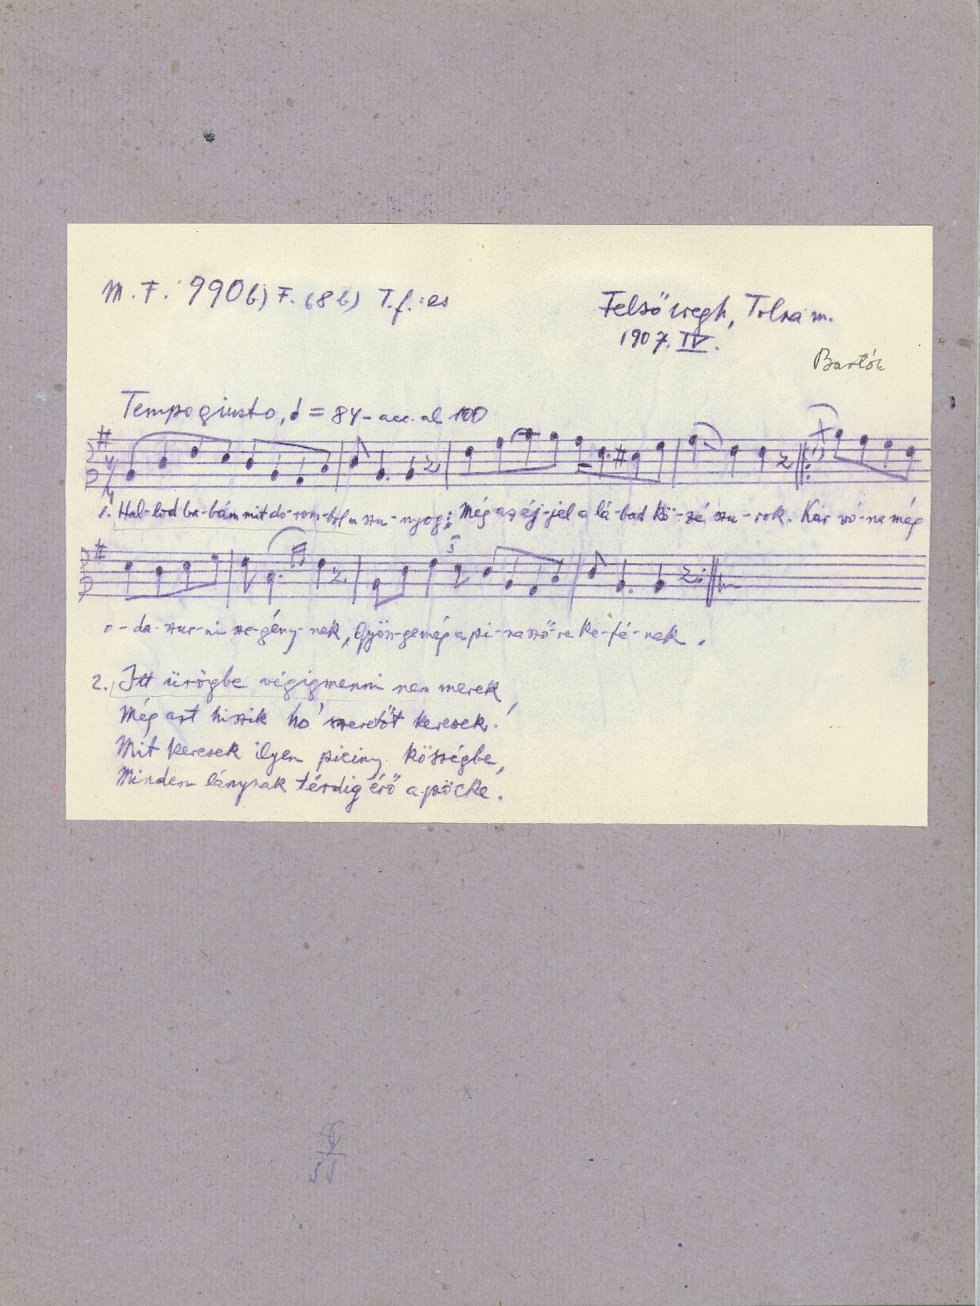 M. F. 990 b) F. (8 b) T.f.: es
Felsőiregh, Tolna m.
1907. IV.
Bartók
Tempo giusto, ♩ = 84 - acc. al 100
1. Hal-lod ba-bám mit do-rom-bol a szu-nyog; Még az éj-jel a lá-bad kö-zé szu-rok. Kár vó-na még
o-da-szur-ni sze-gény-nek, Gyön-ge még a pi-na szőre ke-fé-nek.
2. Itt ürögbe végigmenni nem merek,
Még azt hiszik ho' szeretőt keresek.
Mit keresek ilyen piciny községbe,
Minden lánynak térdig érő a pöcke.